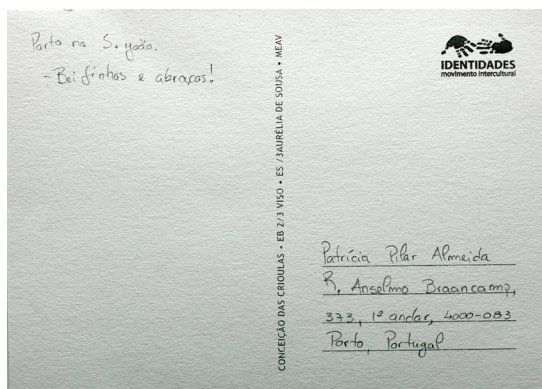 Porto no S. João.
- Beijinhos e abraços!
CONCEIÇÃO DAS CRIOULAS • EB 2/3 VISO • ES /3AURÉLIA DE SOUSA • MEAV
IDENTIDADES
movimento intercultural
Patrícia Pilar Almeida
R. Anselmo Braancamp,
373, 1º andar, 4000-083
Porto, Portugal